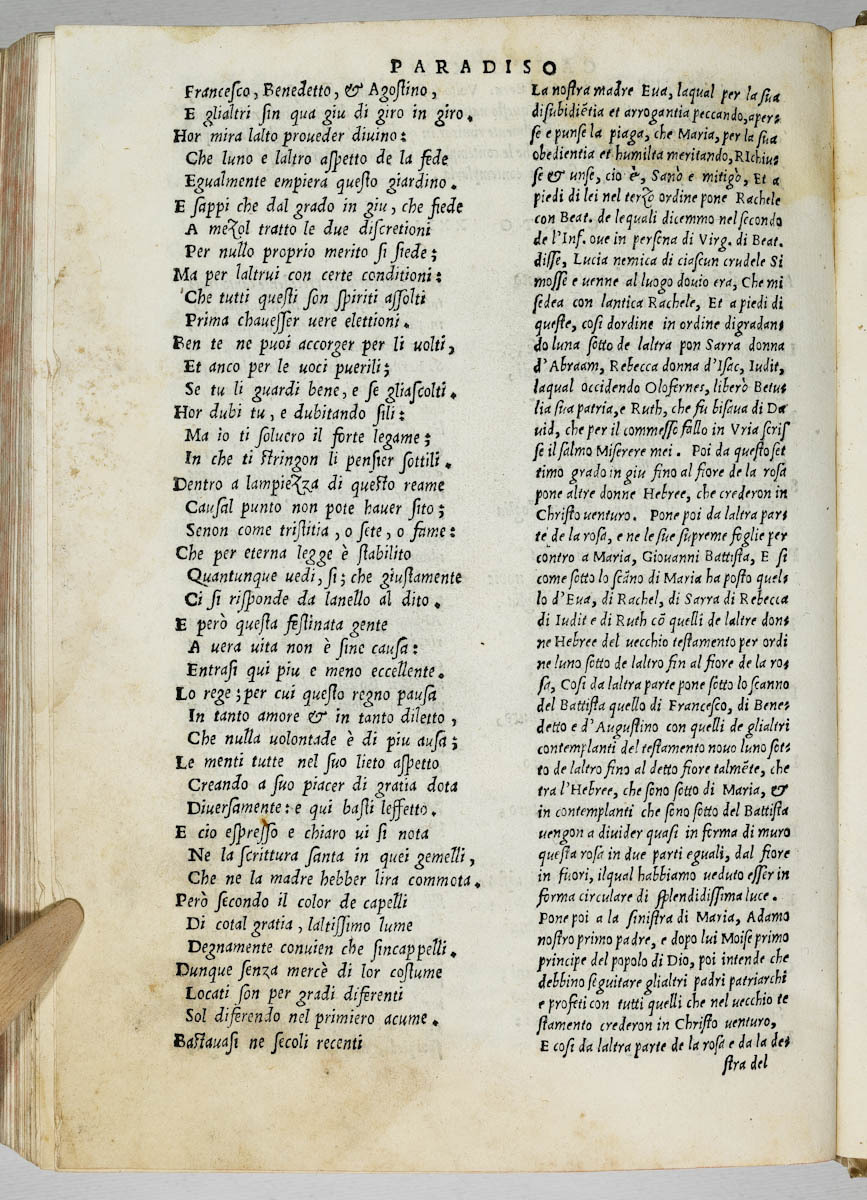 PARADISO
Francesco, Benedetto, & Agostino,
E glialtri sin qua giu di giro in giro.
Hor mira lalto proueder diuino:
Che luno e laltro aspetto de la fede
Egualmente empiera questo giardino.
E sappi che dal grado in giu, che fiede
A mezol tratto le due discretioni
Per nullo proprio merito si siede;
Ma per laltrui con certe conditioni:
Che tutti questi son spiriti assolti
Prima chauesser uere elettioni.
Ben te ne puoi accorger per li uolti,
Et anco per le uoci puerili;
Se tu li guardi bene, e se gliascolti.
Hor dubi tu, e dubitando sili:
Ma io ti soluero il forte legame;
In che ti stringon li pensier sottili.
Dentro a lampiezza di questo reame
Causal punto non pote hauer sito;
Senon come tristitia, o sete, o fame:
Che per eterna legge è stabilito
Quantunque uedi, si; che giustamente
Ci si risponde da lanello al dito.
E però questa festinata gente
A uera uita non è sine causa:
Entrasi qui piu e meno eccellente.
Lo rege; per cui questo regno pausa
In tanto amore & in tanto diletto,
Che nulla uolontade è di piu ausa;
Le menti tutte nel suo lieto aspetto
Creando a suo piacer di gratia dota
Diuersamente: e qui basti leffetto.
E cio espresso e chiaro ui si nota
Ne la scrittura santa in quei gemelli,
Che ne la madre hebber lira commota.
Però secondo il color de capelli
Di cotal gratia, laltissimo lume
Degnamente conuien che sincappelli.
Dunque senza mercè di lor costume
Locati son per gradi diferenti
Sol diferendo nel primiero acume.
Bastauasi ne secoli recenti
La nostra madre Eua, laqual per la sua
disubidiẽtia et arrogantia peccando, aper-
se e punse la piaga, che Maria, per la sua
obedientia et humilta meritando, RIchiu-
se & unse, cio è, Sanò e mitigò, Et a
piedi di lei nel terzo ordine pone Rachele
con Beat. de lequali dicemmo nel secondo
de l'Inf. oue in persona di Virg. di Beat.
disse, Lucia nemica di ciascun crudele Si
mosse e uenne al luogo douio era, Che mi
sedea con lantica Rachele, Et a piedi di
queste, cosi dordine in ordine digradan-
do luna sotto de laltra pon Sarra donna
d'Abraam, Rebecca donna d'Isac, Iudit,
laqual occidendo Olofernes, liberò Betu-
lia sua patria, e Ruth, che fu bisaua di Da
uid, che per il commesso fallo in Vria scris
se il salmo Miserere mei. Poi da questo set
timo grado in giu fino al fiore de la rosa
pone altre donne Hebree, che crederon in
Christo uenturo. Pone poi da laltra par-
te de la rosa, e ne le sue supreme foglie per
contro a Maria, Giouanni Battista, E si
come sotto lo scãno di Maria ha posto quel-
lo d'Eua, di Rachel, di Sarra di Rebecca
di Iudit e di Ruth cõ quelli de laltre don-
ne Hebree del uecchio testamento per ordi
ne luno sotto de laltro fin al fiore de la ro-
sa, Cosi da laltra parte pone sotto lo scanno
del Battista quello di Francesco, di Bene-
detto e d'Augustino con quelli de glialtri
contemplanti del testamento nouo luno sot-
to de laltro fino al detto fiore talmẽte, che
tra l'Hebree, che sono sotto di Maria, &
in contemplanti che sono sotto del Battista
uengon a diuider quasi in forma di muro
questa rosa in due parti eguali, dal fiore
in fuori, ilqual habbiamo ueduto esser in
forma circulare di splendidissima luce.
Pone poi a la sinistra di Maria, Adamo
nostro primo padre, e dopo lui Moise primo
principe del popolo di Dio, poi intende che
debbino seguitare glialtri padri patriarchi
e profeti con tutti quelli che nel uecchio te
stamento crederon in Christo uenturo,
E cosi da laltra parte de la rosa e da la de-
stra del